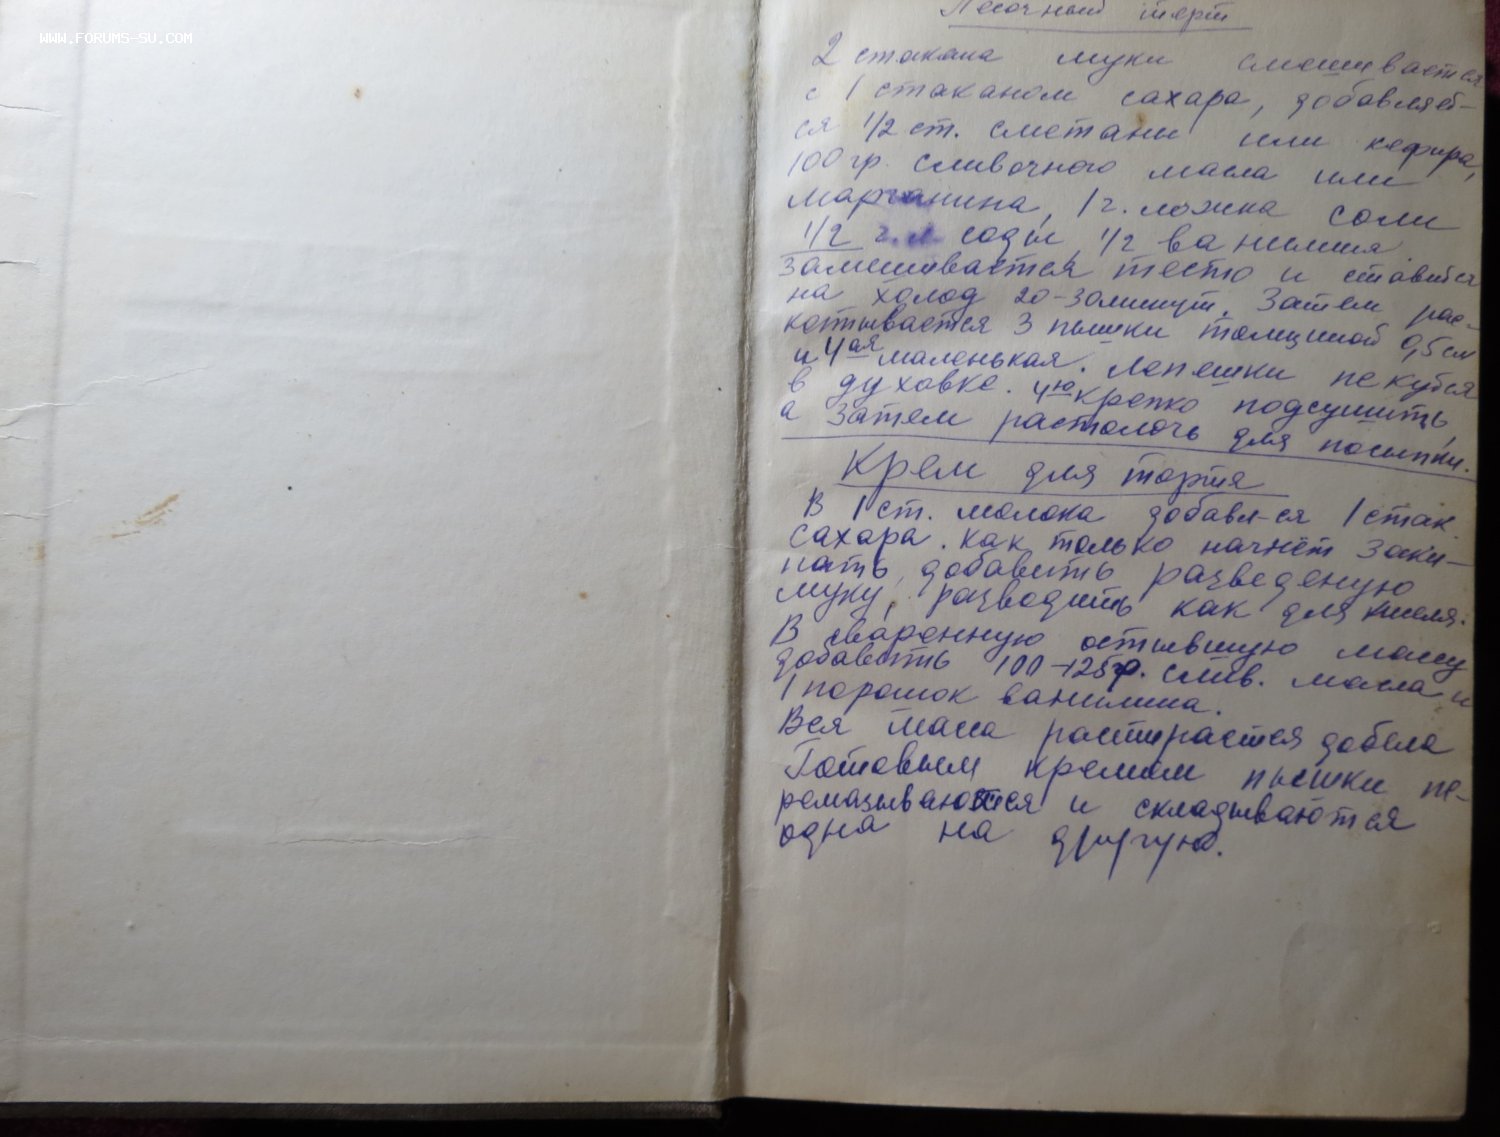 WWW.FORUMS-SU.COM
Песочный торт
2 стакана муки смешивается
с 1 стаканом сахара, добавляет-
ся 1/2 ст. сметаны или кефира,
100 гр. сливочного масла или
маргарина, 1 ч. ложка соли
1/2 ч. л. соды, 1/2 ванилина.
Замешивается тесто и ставится
на холод 20-30 минут. Затем рас-
катывается 3 пышки толщиной 0,5 см
и 4ая маленькая. Лепешки пекутся
в духовке. 4ю крепко подсушить,
а затем растолочь для посыпки.
Крем для торта
В 1 ст. молока добавл-ся 1 стак.
сахара. Как только начнёт заки-
пать, добавить разведеную
муку, разводить как для киселя.
В сваренную остывшую массу
добавить 100-125 гр. слив. масла и
1 порошок ванилина.
Вся масса растирается добела
Готовым кремом пышки пе-
ремазываются и складываются
одна на другую.